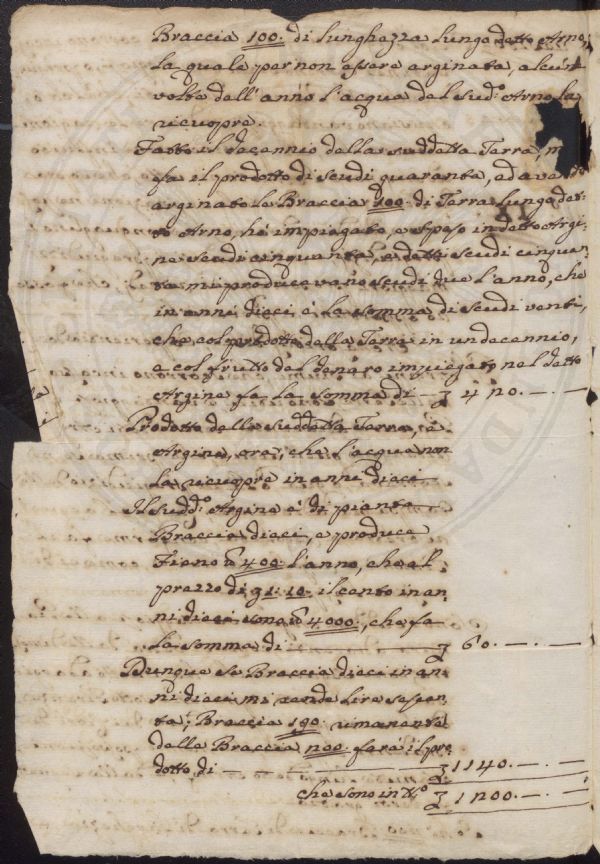 Braccia 100. di lunghezza lungo detto Arno,
la quale per non essere arginata, alcune
volte dell'anno l'acqua del sud.º Arno la
ricuopre.
Fatto il decennio della suddetta Terra, m
fa il prodotto di scudi quaranta, ed avendo
arginato le Braccia 100. di Terra lungo det-
to Arno, hò impiegato, e speso in detto Argi-
ne scudi cinquanta, e detti scudi cinquan-
ta mi producevano scudi due l'anno, che
in anni dieci è la somma di scudi venti,
che col prodotto della Terra in un decennio,
e col frutto del denaro impiegato nel detto
Argine fa la somma di — £ 420. — . —
Prodotto della suddetta Terra, e
Argine, ora, che l'acqua non
la ricuopre in anni dieci
Il sudd.º Argine è di pianta
Braccia dieci, e produce
Fieno 400. l'anno, che al
prezzo di £1: 10. il cento in an-
ni dieci sono 4000., che fa
la somma di — £ 60. — . —
Dunque se Braccia dieci in an-
ni dieci mi rende Lire sessan-
ta; Braccia 190. rimanente
delle Braccia 200. farà il pro-
dotto di — — £ 1140. — . —
che sono in tt.º £ 1200. — . —